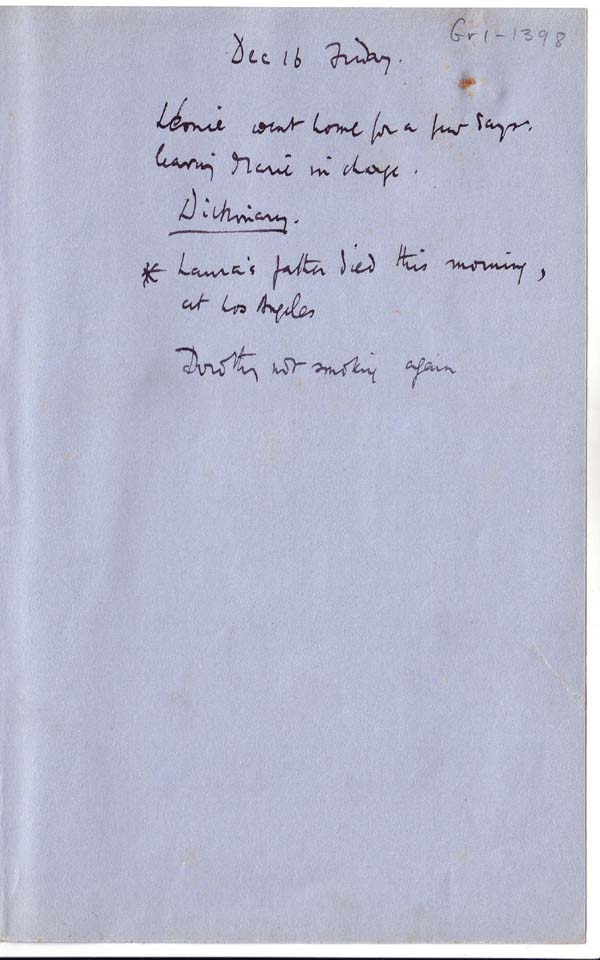 Gr1-1398
Dec 16 Friday.
Léonie went home for a few days.
leaving Marie in charge.
Dictionary.
* Laura's father died this morning,
at Los Angeles
Dorothy not smoking again